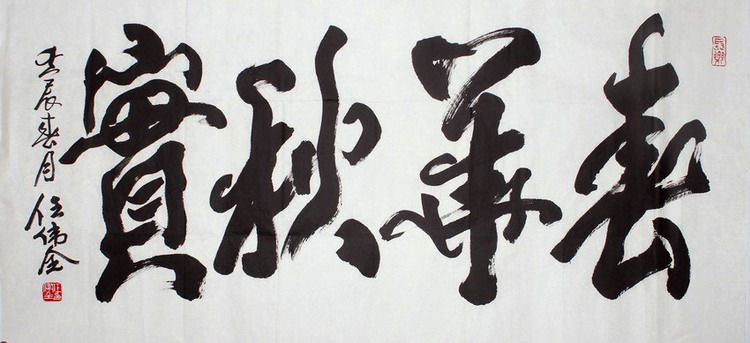 春華秋實
壬辰春月任伟金